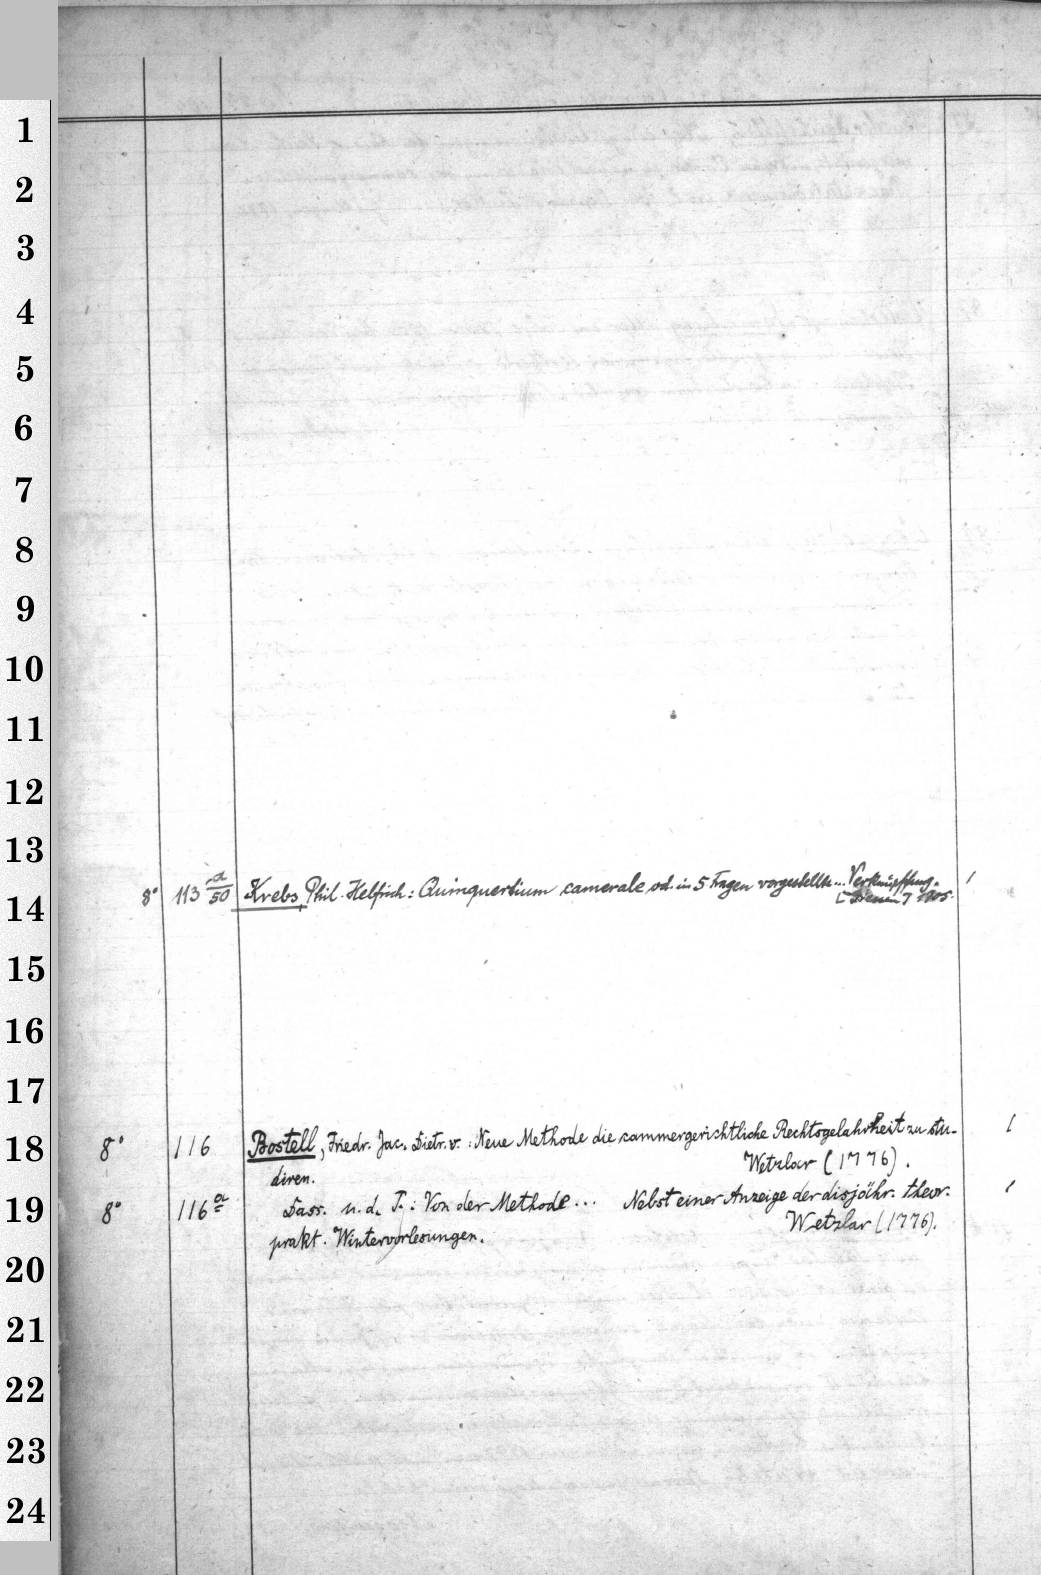 1
2
3
4
5
6
7
8
9
10
11
12
13
14
15
16
17
18
19
20
21
22
23
24
8° 113 a/50 Krebs, Phil. Helfrich: Quinquertium camerale od. in 5 Fragen vorgestellte... Verknüpffung. 1
[Giessen] 1705.
8° 116 Bostell, Friedr. Jac. Dietr. v.: Neue Methode die cammergerichtliche Rechtsgelahrheit zu stu- 1
diren. Wetzlar (1776).
8° 116a Dass. u. d. T.: Von der Methode... Nebst einer Anzeige der disjähr. theor. 1
prakt. Wintervorlesungen. Wetzlar (1776).